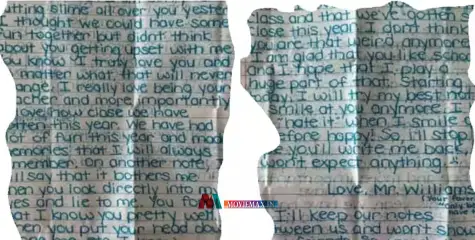 itting
time all
you yeste
thought we could have some
un together but didn't think
bout you getting upset with me
u know I truly love you and
matter what, that will never
ange. I really love being your
cher and more importantly
love how close we have
otten this year. We have had
lot of fun this year and mad
emories that I will always
member. On another note,
ll say that it bothers me
en you look directly into m
es and lie to me. You fo
at I know you pretty well.
en you put your head do
MOVIEMAX
lass and that we've gotten
ose this year. I don't think
you are that weird anymore
am glad that you like school
and happier. I play a
huge part of that. Starting
day, I will try my best not
smile at you anymore
hate it. When I smile
efore happy! So, I'll stop
you'll write me back
won't expect anything.
Love, Mr. Williams
(your fav
I'll keep our notes
tween us and won't sho